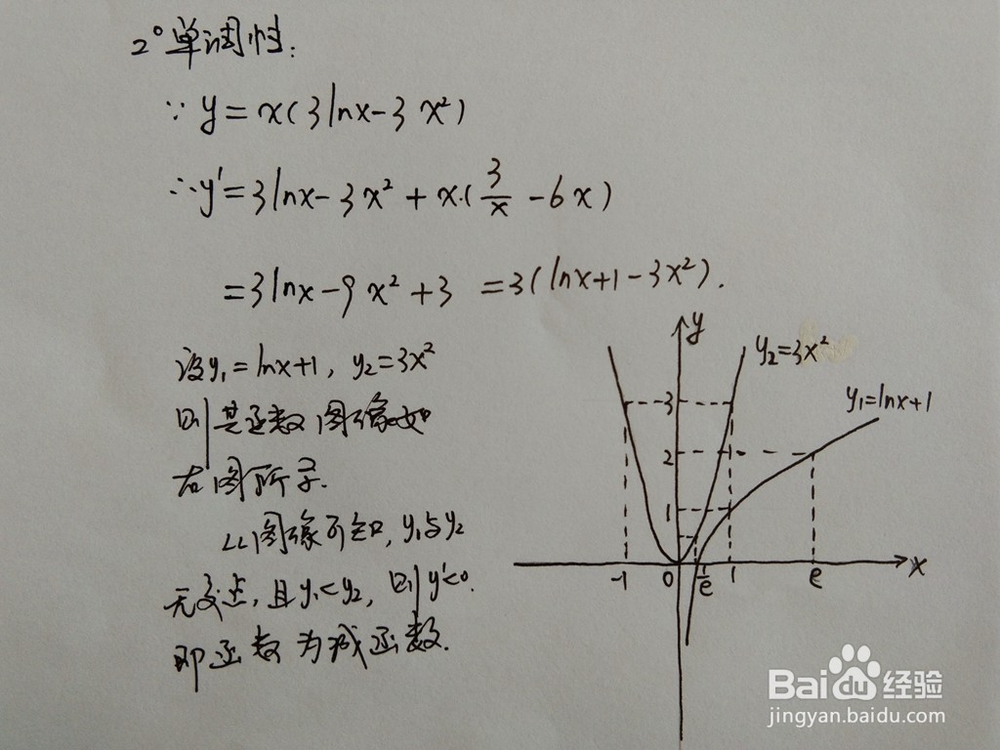 2° 单调性:
∵ y = x(3lnx-3x²)
∴ y' = 3lnx-3x² + x·(3/x -6x)
=3lnx-9x²+3 =3(lnx+1-3x²).
设y₁=lnx+1, y₂=3x²
则其函数图像如
右图所示.
从图像可知, y₁与y₂
无交点, 且y₁<y₂, 则y'<0.
即函数为减函数.
y
y₂=3x²
y₁=lnx+1
3
2
1
-1 0 1/e 1 e x
Baidu 经验
jingyan.baidu.com